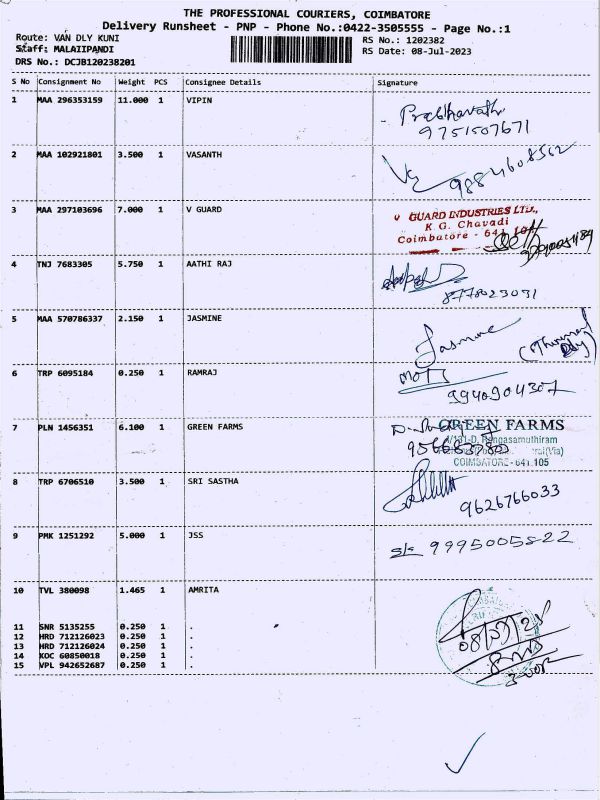 THE PROFESSIONAL COURIERS, COIMBATORE
Delivery Runsheet - PNP - Phone No.:0422-3505555 - Page No.:1
Route: VAN DLY KUNI RS No.: 1202382
Staff: MALAIIPANDI RS Date: 08-Jul-2023
DRS No.: DCJB120238201
S No Consignment No Weight PCS Consignee Details Signature
1 MAA 296353159 11.000 1 VIPIN
Prabhavathi
9751507671
2 MAA 102921801 3.500 1 VASANTH
9884608562
3 MAA 297103696 7.000 1 V GUARD
V GUARD INDUSTRIES LTD.,
K.G. Chavadi
Coimbatore - 641 105
4 TNJ 7683305 5.750 1 AATHI RAJ
8778023031
5 MAA 570786337 2.150 1 JASMINE
Jasmine
6 TRP 6095184 0.250 1 RAMRAJ
9940904307
7 PLN 1456351 6.100 1 GREEN FARMS
GREEN FARMS
COIMBATORE - 641 105
8 TRP 6706510 3.500 1 SRI SASTHA
9626766033
9 PMK 1251292 5.000 1 JSS
9995005822
10 TVL 380098 1.465 1 AMRITA
11 SNR 5135255 0.250 1 .
12 HRD 712126023 0.250 1 .
13 HRD 712126024 0.250 1 .
14 KOC 60850018 0.250 1 .
15 VPL 942652687 0.250 1 .